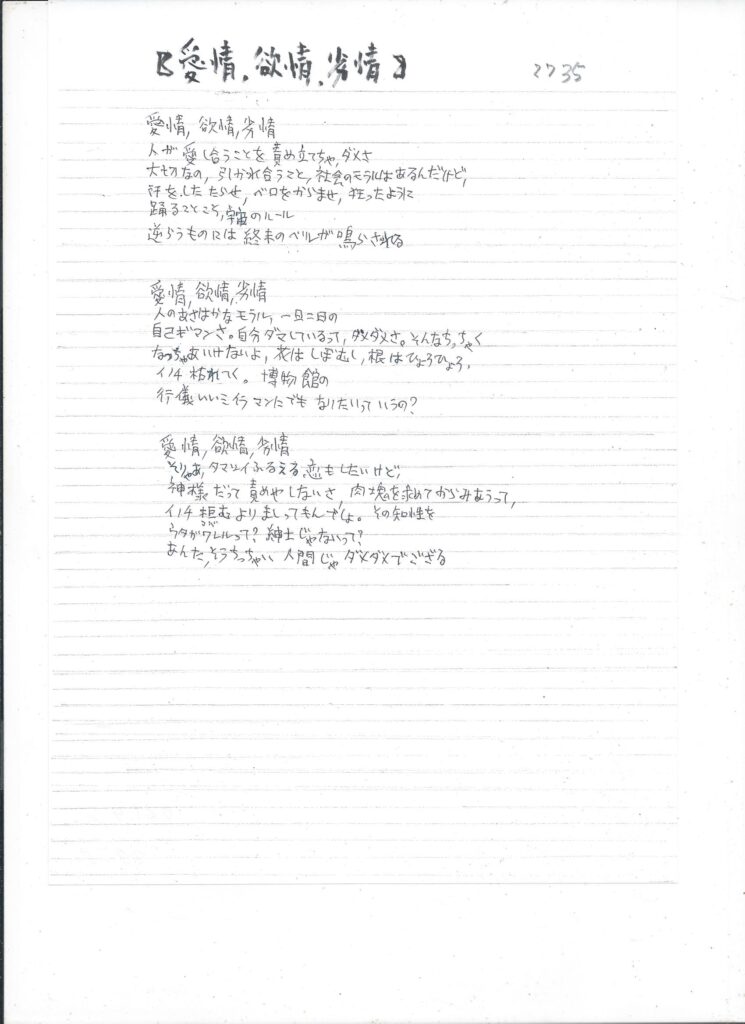 【愛情、欲情、劣情】 2735
愛情,欲情,劣情
人が愛し合うことを責め立てちゃ,ダメさ
大切なの,引かれ合うこと,社会のモラルはあるんだけど,
汗をしたたらせ,ベロをからませ,狂ったように
踊ることこそ,宇宙のルール
逆らうものには終末のベルが鳴らされる
愛情,欲情,劣情
人のあさはかなモラル,一旦二日の
自己ギマンさ。自分ダマしているって,ダメダメさ。そんなちっちゃく
なっちゃあいけないよ,花はしぼむし,根はひょろひょろ,
イノチ枯れてく。博物館の
行儀いいミイラマンにでもなりたいっていうの?
愛情,欲情,劣情
そりゃあ,タマシイふるえる恋もしたいけど,
神様だって責めやしないさ,肉塊を求めてからみあうって,
イノチ拒むよりましってもんでしょ。その知性を
ウタガワレルって?紳士じゃないって?
あんた,そうちっちゃい人間じゃダメダメでござる